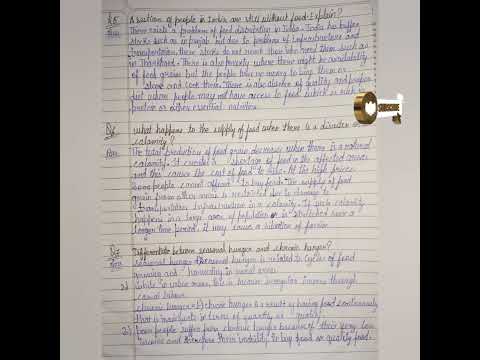 Q5. A section of people in India are still without food. Explain?
Ans There exists a problem of food distribution in India. India has buffer
stocks such as in punjab but due to problems of infrastructure and
transportation these stocks do not reach those who need them such as
in Jharkhand. There is also poverty where there might be availability
of food grains but the people have no money to buy them or
store and cook them. There is also absence of quality and proper
diet where people may not have access to food which is rich in
protein or other essential nutrition.
SUBSCRIBE
Q6. what happens to the supply of food when there is a disaster or
calamity?
Ans The total production of food grain decreases when there is a natural
calamity. It creates a shortage of food in the affected areas
and this causes the cost of food to rise. At the high prices
some people cannot afford to buy food. The supply of food
grain from other areas is restricted due to damage to
transportation infrastructure in a calamity. If such calamity
happens in a large area of population or is stretched over a
longer time period, it may cause a situation of famine
Q7. Differentiate between seasonal hunger and chronic hunger?
Ans Seasonal hunger → Seasonal hunger is related to cycles of food
growing and harvesting in rural areas
2) while in urban areas, this is because irregular income through
casual labour.
chronic hunger → chronic hunger is a result of having food continuously
that is inadequate in terms of quantity or quality
2) Poor people suffer from chronic hunger because of their very low
income and therefore their inability to buy food or quality food.